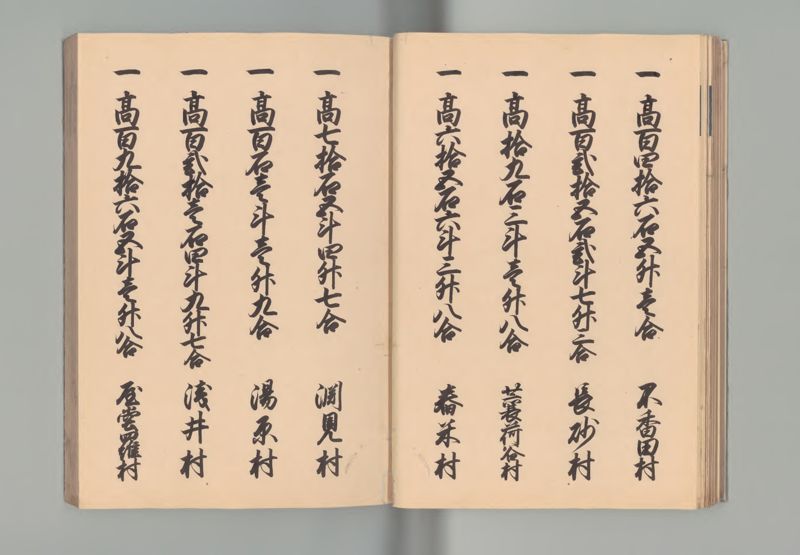 一 高百四拾六石五升壱合 不香田村
一 高百弐拾五石弐斗七升二合 長砂村
一 高拾九石三斗壱升八合 荷谷村
一 高六拾五石六斗三升八合 春米村
一 高七拾石五斗四升七合 渕見村
一 高百石壱斗壱升九合 湯原村
一 高百弐拾壱石四斗九升七合 浅井村
一 高百九拾六石五斗壱升八合 屋雲羅村